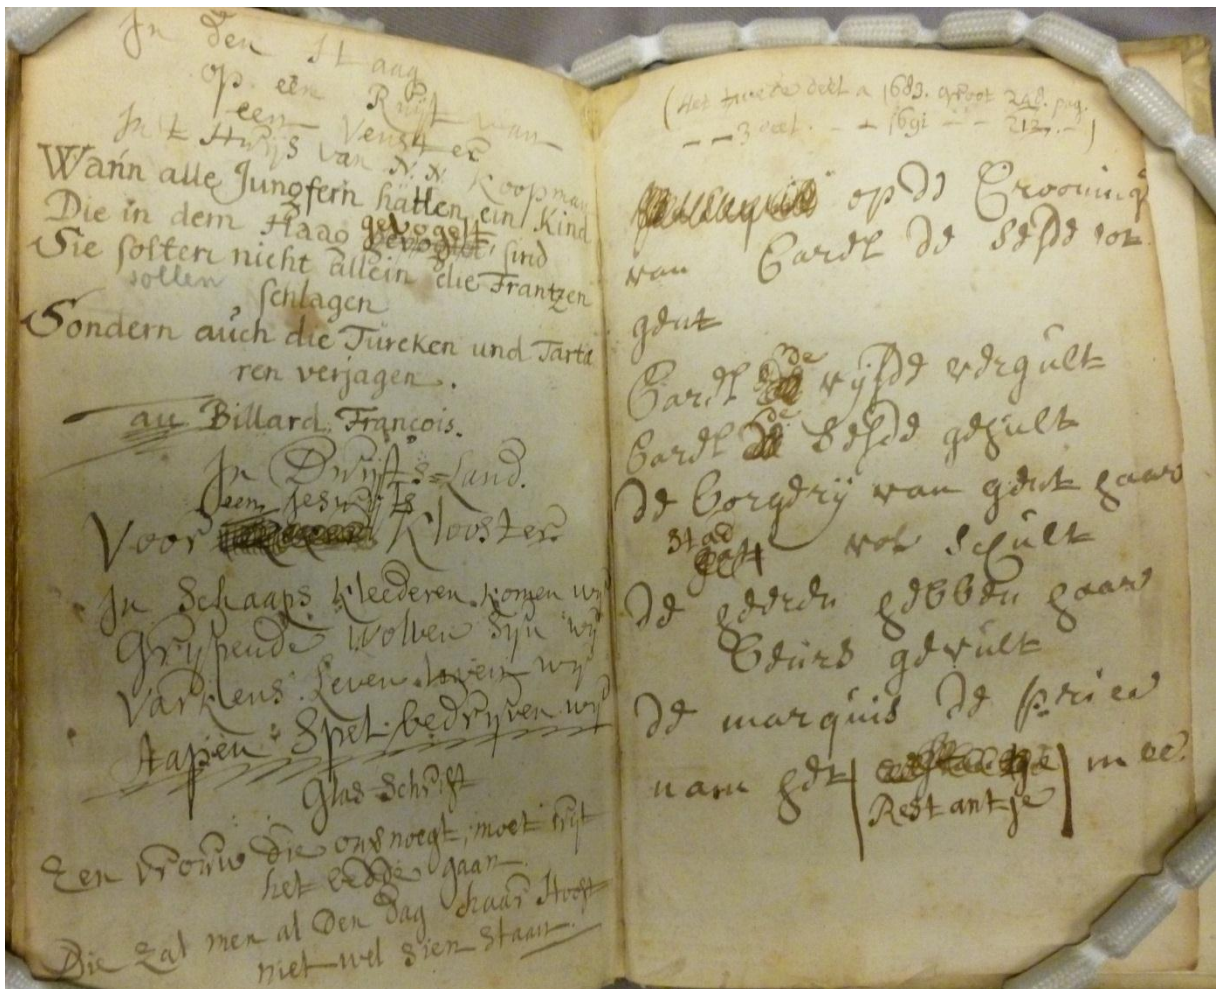 In den Haag
op een Ruÿt van
een Venster
In 't Huÿs van N. N. Koopman
Wann alle Jungfern hätten ein Kind
Die in dem Haag gevogelt sind
Sie solten nicht allein die Frantzen
sollen
schlagen
Sondern auch die Türcken und Tarta
ren verjagen.
au Billard François.
In Duÿts=Land.
een Jesuÿts
Voor Klooster.
In Schaaps Kleederen komen wÿ
Grÿpende Wolven zÿn wÿ
Varkens Leven wÿ
Apen Spel bedrÿven wÿ
Glas-Schrift
Een vrouw die ons noegt, moet uÿt
het bedde gaan
Die zal men al den dag haar Hooft
niet wel sien staan.
(Het twede deel a 1683. groot 248. pag.
— — 3 deel. — — 1691 — — 212. — )
op de Crooning
van Carel de sesde tot
gent
Carel de vÿfde vergult
Carel de sesde gehult
de borgerÿ van gent haar
stad vol schult
de heeren hebben haar
beurs gevult
de marquis de prie
nam het mee.
Restantje